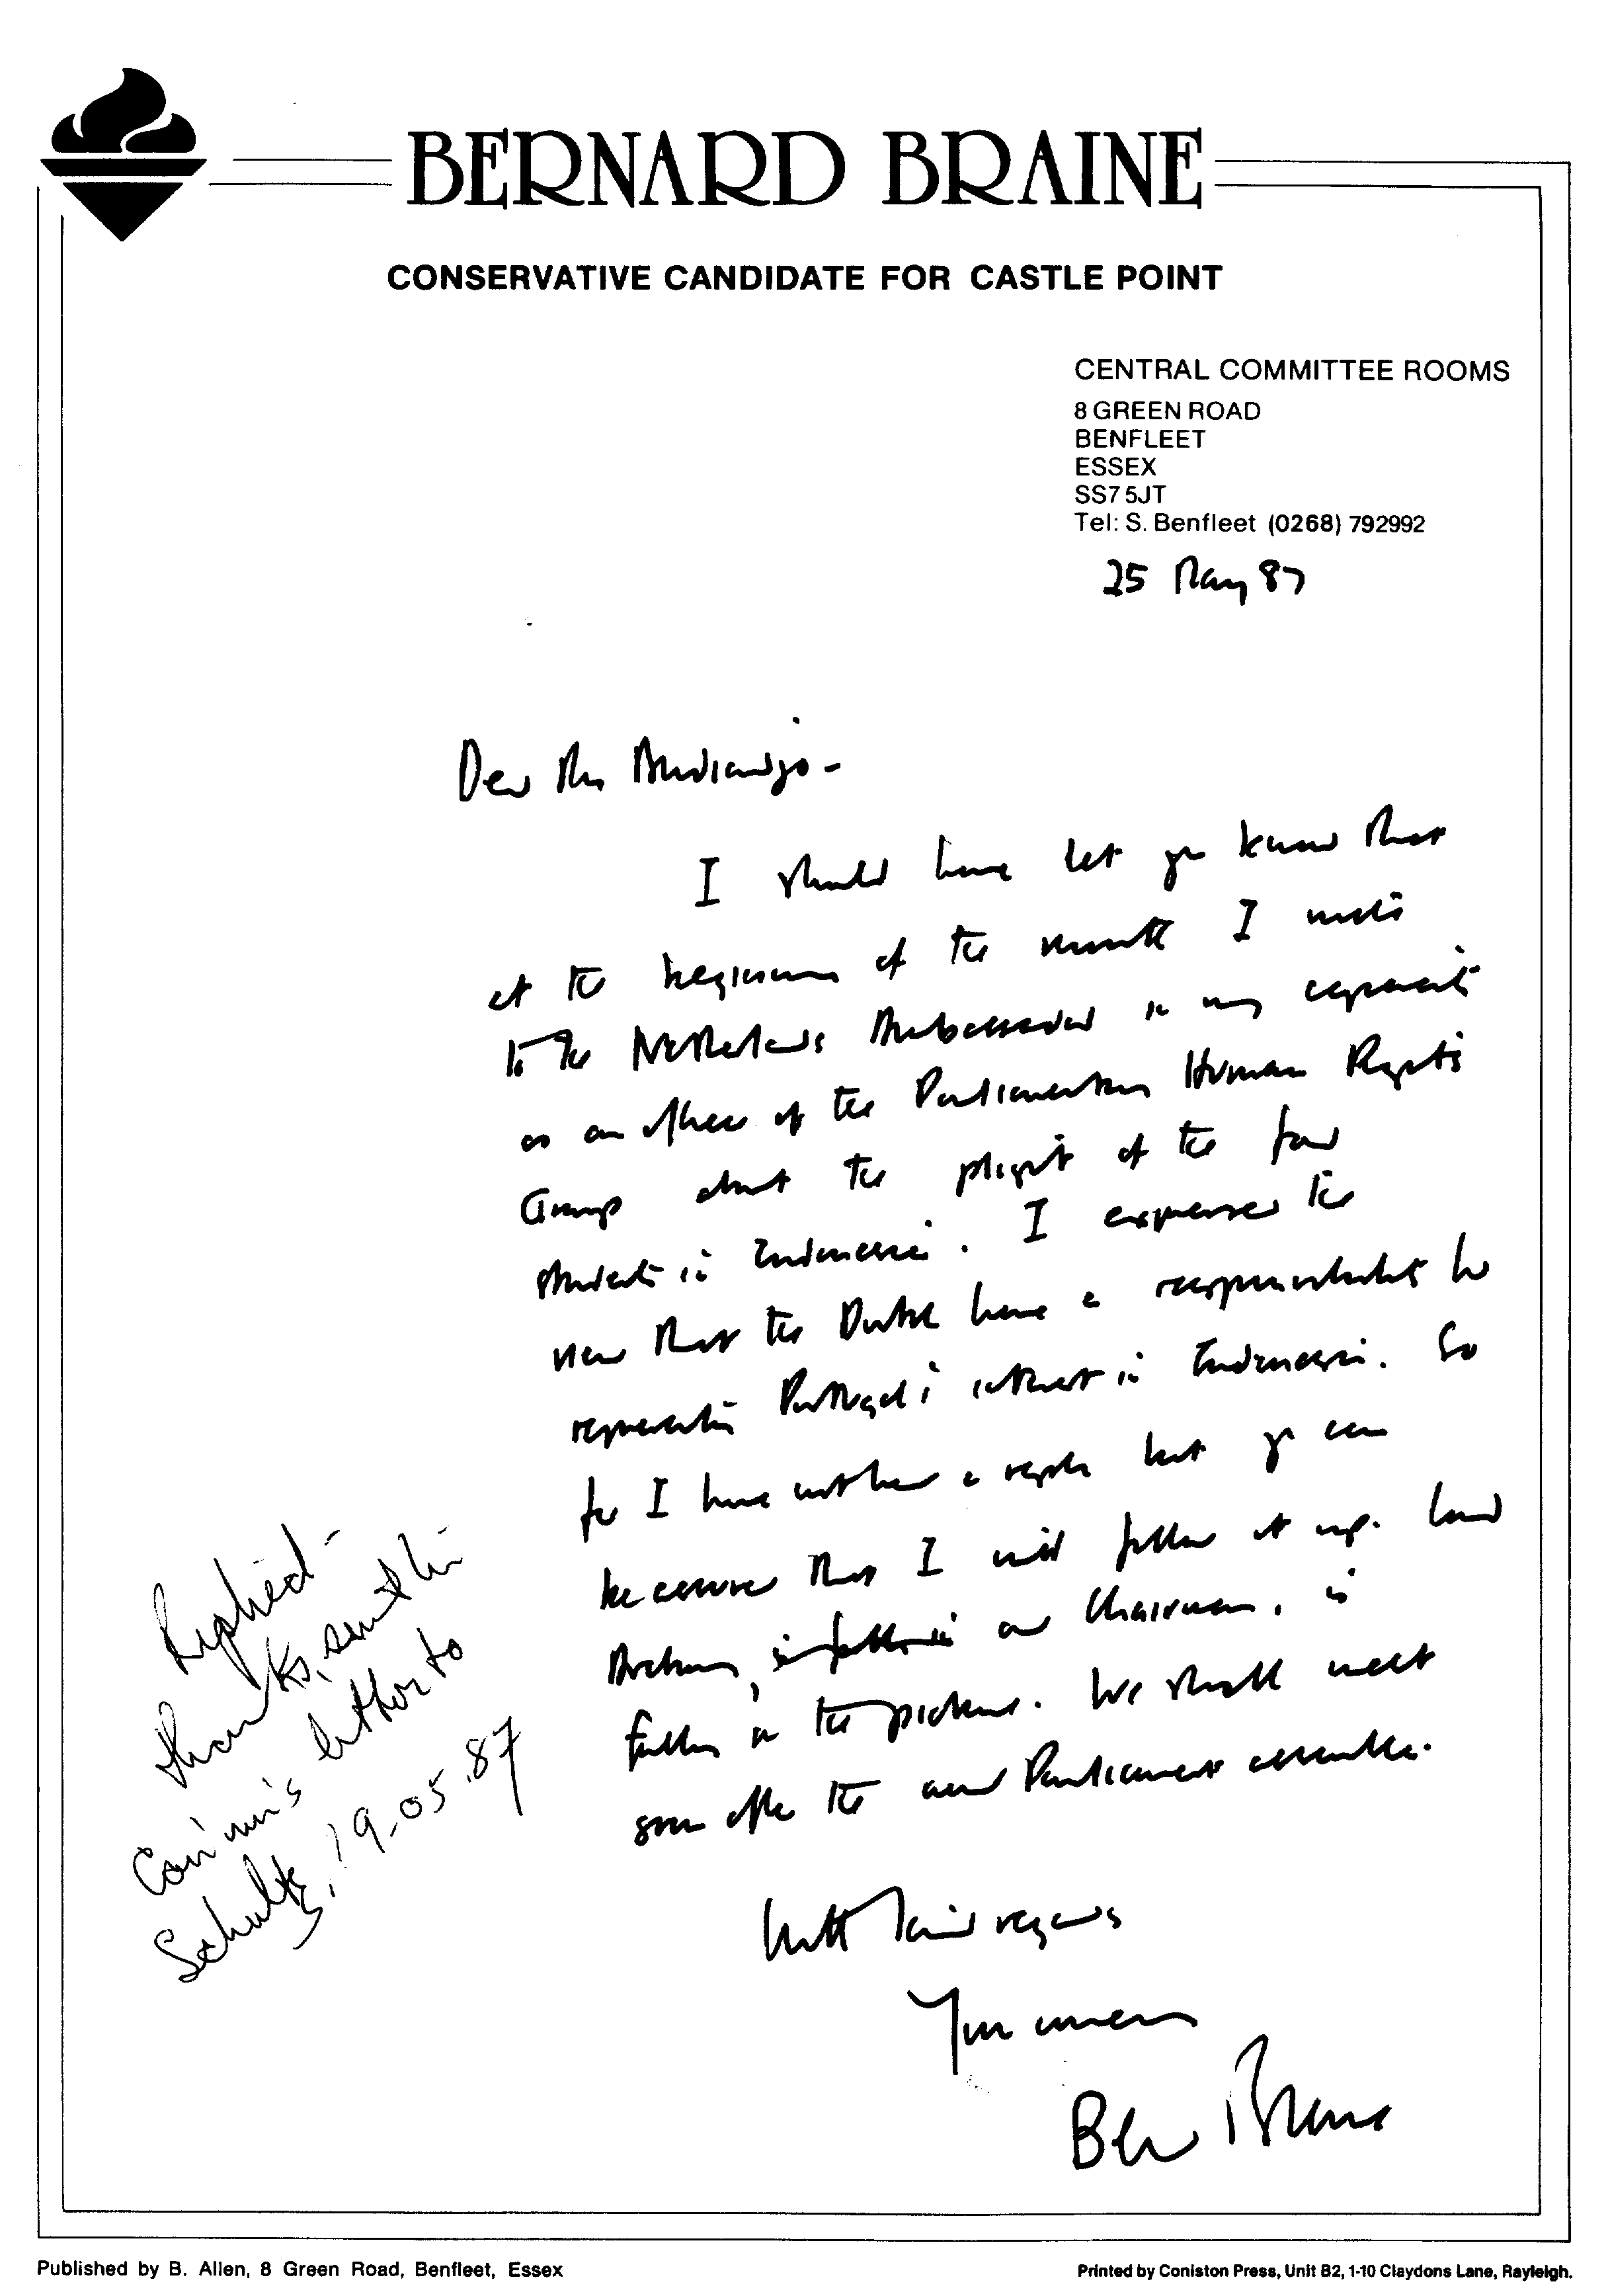 BERNARD BRAINE
CONSERVATIVE CANDIDATE FOR CASTLE POINT
CENTRAL COMMITTEE ROOMS
8 GREEN ROAD
BENFLEET
ESSEX
SS7 5JT
Tel: S. Benfleet (0268) 792992
25 May 87
Dear Ms Budiardjo -
I should have let you know that
at the beginning of the month I wrote
to the Netherlands Ambassador in my capacity
as an officer of the Parliamentary Human Rights
Group about the plight of the four
students in Indonesia. I expressed the
view that the Dutch have a responsibility to
represent Portugal's interest in Indonesia. So
far I have not had a reply but you can
be assured that I will follow it up. Lord
Avebury, our Chairman, is
fully in the picture. We shall meet
soon after the new Parliament assembles.
With kind regards
Yours sincerely
Bernard Braine
Replied -
thanks, sent him
Con'mn's letter to
Schultz, 19-05.87
Published by B. Allen, 8 Green Road, Benfleet, Essex
Printed by Coniston Press, Unit B2, 1-10 Claydons Lane, Rayleigh.